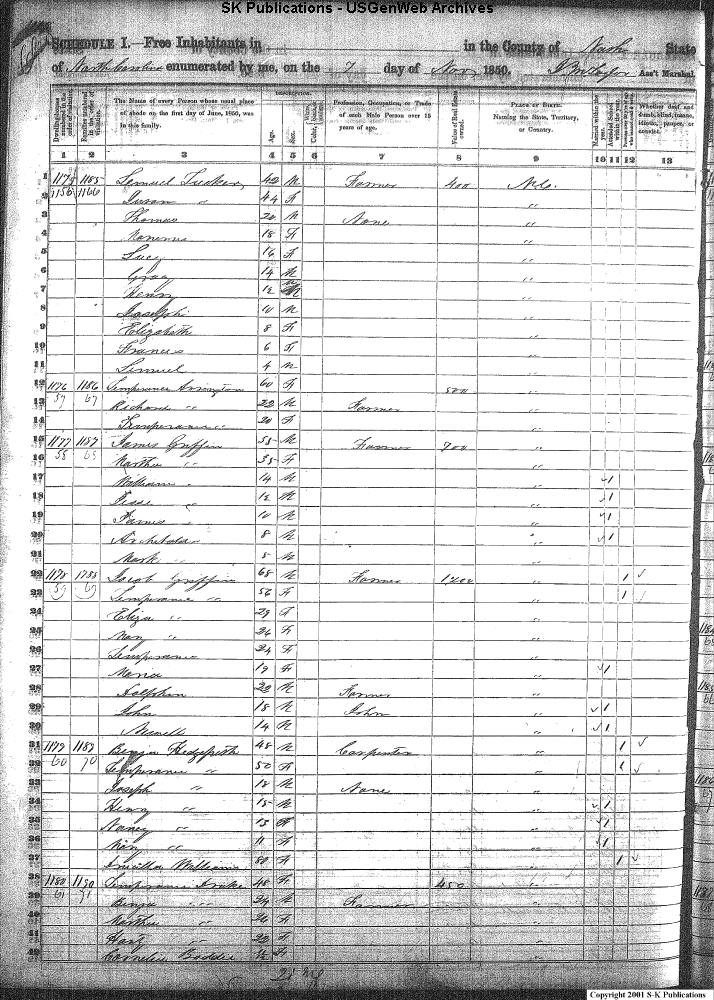 SK Publications - USGenWeb Archives
SCHEDULE I.—Free Inhabitants in in the County of Nash State
of North Carolina enumerated by me, on the 7 day of Nov 1850. Ass't Marshal.
Dwelling-houses numbered in the order of visitation.
Families numbered in the order of visitation.
The Name of every Person whose usual place of abode on the first day of June, 1850, was in this family.
DESCRIPTION.
Age.
Sex.
Profession, Occupation, or Trade of each Male Person over 15 years of age.
Value of Real Estate owned.
PLACE OF BIRTH. Naming the State, Territory, or Country.
Married within the year.
Attended School within the year.
Whether deaf and dumb, blind, insane, idiotic, pauper, or convict.
1 2 3 4 5 6 7 8 9 10 11 12 13
1 1175 1185 Lemuel Tucker 42 M Farmer 400 N.C.
2 1156 1166 Susan " 44 F "
3 Thomas 20 M None "
4 18 F "
5 Lucy 16 F "
6 Gray 14 M "
7 Henry 12 M "
8 Joseph 10 M "
9 Elizabeth 8 F "
10 Frances 6 F "
11 Lemuel 4 M "
12 1176 1186 Temperance Arrington 60 F 500 "
13 57 67 Richard " 22 M Farmer "
14 Temperance " 20 F "
15 1177 1187 James Griffin 55 M Farmer 700 "
16 58 68 Martha " 35 F "
17 William " 14 M 1
18 Jesse " 12 M 1
19 James " 10 M 1
20 Archibald 8 M " 1
21 Mark " 5 M "
22 1178 1188 Jacob Griffin 68 M Farmer 1200 " 1 ✓
23 59 69 Temperance " 56 F " 1 ✓
24 Eliza " 29 F "
25 Mary " 26 F "
26 Temperance 24 F "
27 19 F " 1
28 22 M Farmer "
29 John 18 M John " 1
30 14 M " 1
31 1179 1189 Benja Hedgepeth 48 M Carpenter " 1 ✓
32 60 70 Temperance " 50 F " 1 ✓
33 Joseph " 18 M None "
34 Henry " 15 M " 1
35 Nancy " 13 F " 1
36 Mary " 11 F " 1
37 Williams 80 F " 1 ✓
38 1180 1190 Temperance Drake 48 F 450 "
39 61 71 Benja " 24 M Farmer "
40 Martha " 26 F "
41 Hart " 22 F "
42 Cornelia Boddie F "
Copyright 2001 S-K Publications